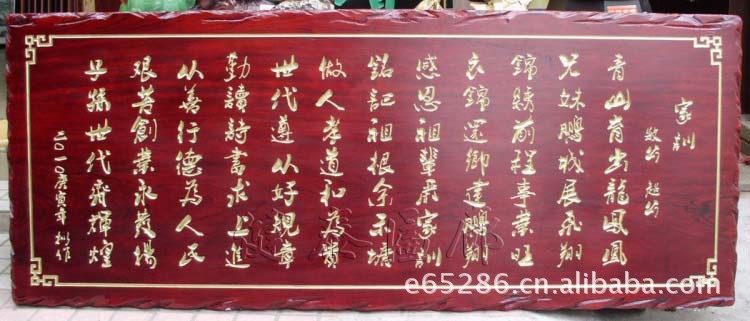 家訓
青山育出龍鳳凰
兄妹鵬城展飛翔
錦綉前程事業旺
衣錦還鄉建鵬翔
感恩祖輩齊家訓
銘記祖根余禾塘
做人孝道和為貴
世代遵從好規章
勤讀詩書求上進
從善行德為人民
艱苦創業永發揚
子孫世代永輝煌
二〇一〇庚寅年 撰作
e65286.cn.alibaba.com